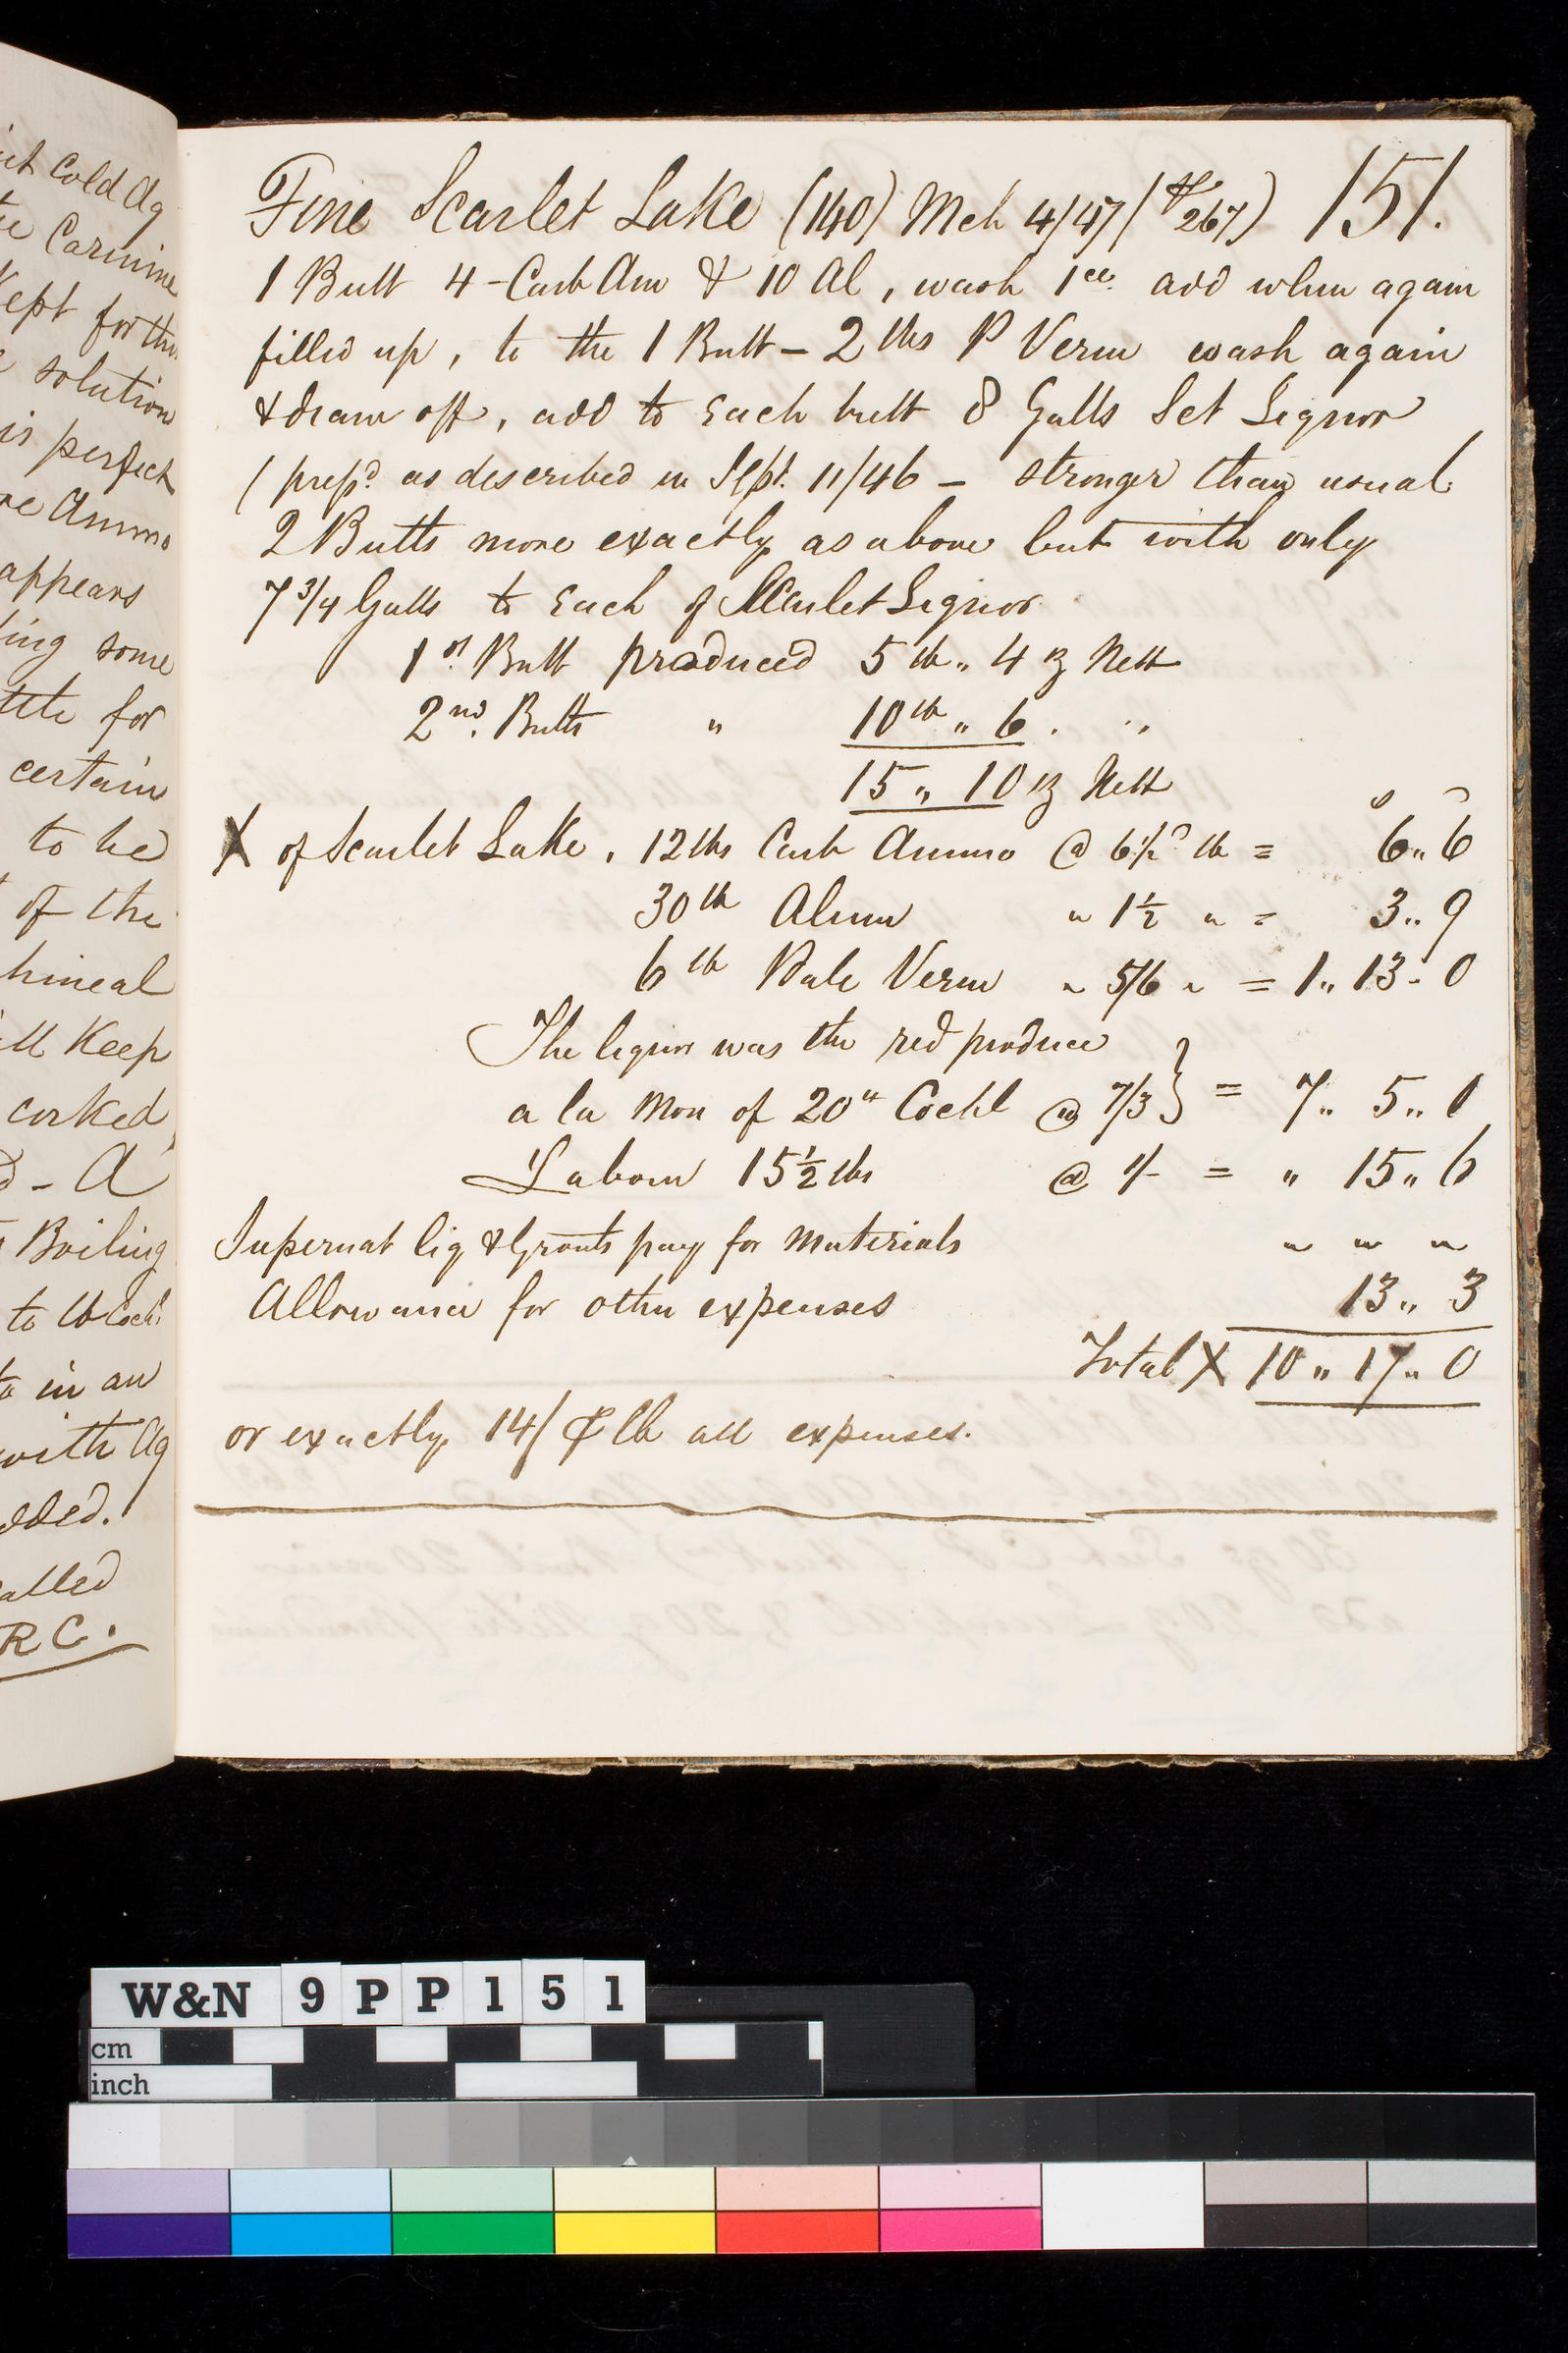 it Cold Aq
Carmine
Kept for the
solution
is perfect
re Ammo
appears
ing some
ttle for
certain
to be
of the
hineal
ll Keep
corked
D - A
Boiling
to lb Coch
to in an
with Aq
dded.
alled
RC.
Fine Scarlet Lake (140) Mch 4/47 (P/267) 151.
1 Butt 4 - Carb Am & 10 Al, wash 1ce. add when again
filled up, to the 1 Butt - 2 lbs P Verm wash again
& draw off, add to Each butt 8 Galls Sct Liquor
( prepd. as described in Sept. 11/46 - stronger than usual.
2 Butts more exactly as above but with only
7 3/4 Galls to Each of Scarlet Liquor.
1st. Butt produced 5 lb " 4 oz Nett
2nd. Butts " 10 lb " 6 . "
15 " 10 oz Nett
s d
X of Scarlet Lake, 12 lbs Carb Ammo @ 6½d lb = 6 " 6
30 lb Alum " 1½ " = 3 " 9
6 lb Pale Verm " 5/6 " = 1 " 13 " 0
The liquor was the red produce
a la Mon of 20 lb Cochl @ 7/3 } = 7 " 5 " 0
Labour 15½ lbs @ 1/- = " 15 " 6
Supernat liq & Grounts pay for Materials " " "
Allowance for other expenses 13 " 3
Total X 10 " 17 " 0
or exactly 14/ ⅌ lb all expenses.
W&N 9PP151
cm
inch